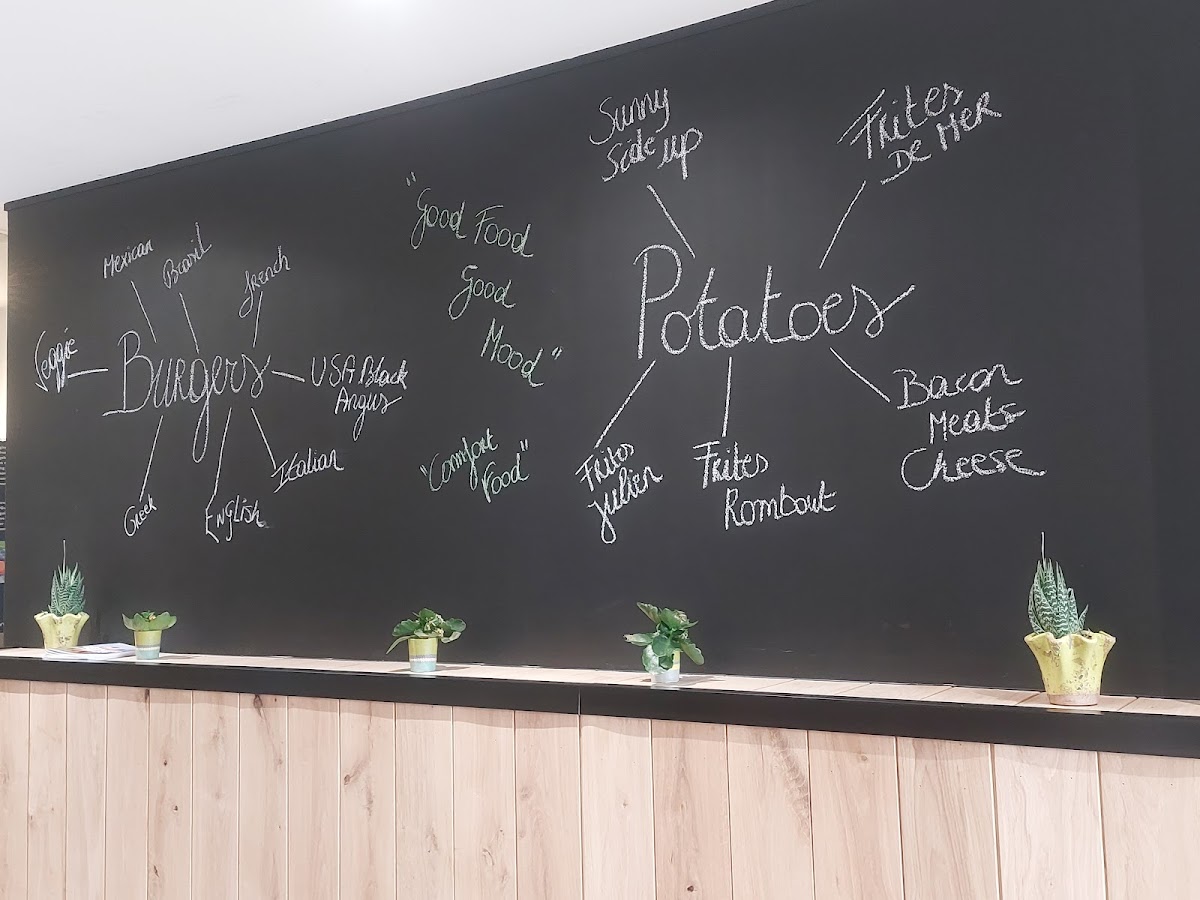 Mexican
Brasil
French
Veggie
Burgers
USA Black
Angus
Greek
English
Italian
"Good Food
Good
Mood"
"Comfort
Food"
Sunny
Side up
Frites
De Mer
Potatoes
Frites
Julien
Frites
Rombout
Bacon
Meats
Cheese